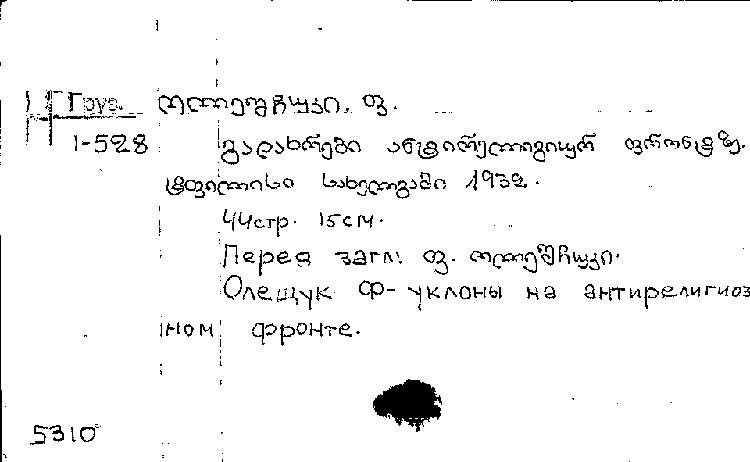 Груз. ოლეშჩუკი. ფ.
1-528 გადახრები ანტირელიგიურ ფრონტზე.
ტფილისი სახელგამი 1932.
44стр. 15см.
Перед загл: ფ. ოლეშჩუკი.
Олещук Ф- уклоны на антирелигиоз
ном фронте.
5310